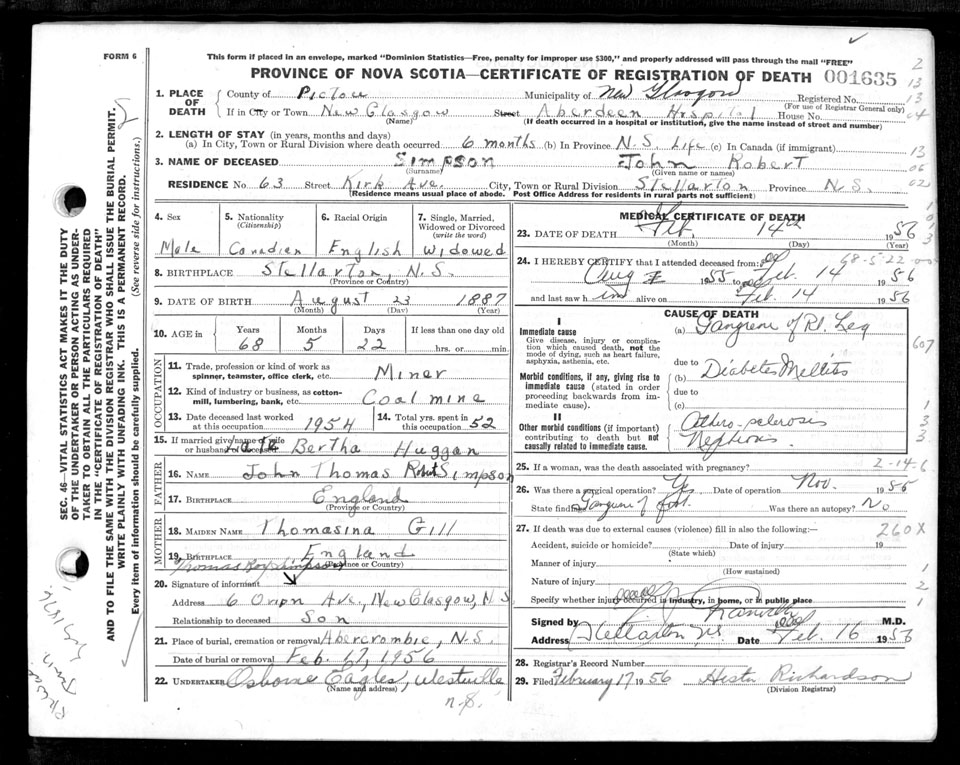 FORM 6
This form if placed in an envelope, marked "Dominion Statistics—Free, penalty for improper use $300," and properly addressed will pass through the mail "FREE"
PROVINCE OF NOVA SCOTIA—CERTIFICATE OF REGISTRATION OF DEATH 001635
1. PLACE OF DEATH
County of Pictou Municipality of New Glasgow Registered No.
(For use of Registrar General only)
If in City or Town New Glasgow Street Aberdeen Hospital House No.
(Name) (If death occurred in a hospital or institution, give the name instead of street and number)
2. LENGTH OF STAY (in years, months and days)
(a) In City, Town or Rural Division where death occurred 6 months (b) In Province N.S. Life (c) In Canada (if immigrant)
3. NAME OF DECEASED Simpson John Robert
(Surname) (Given name or names)
RESIDENCE No 63 Street Kirk Ave. City, Town or Rural Division Stellarton Province N.S.
(Residence means usual place of abode. Post Office Address for residents in rural parts not sufficient)
4. Sex
Male
5. Nationality (Citizenship)
Canadian
6. Racial Origin
English
7. Single, Married, Widowed or Divorced (write the word)
Widowed
8. BIRTHPLACE Stellarton, N.S.
(Province or Country)
9. DATE OF BIRTH August 23 1887
(Month) (Day) (Year)
10. AGE in Years Months Days If less than one day old
68 5 22 hrs. or min.
OCCUPATION
11. Trade, profession or kind of work as spinner, teamster, office clerk, etc. Miner
12. Kind of industry or business, as cotton-mill, lumbering, bank, etc. Coal mine
13. Date deceased last worked at this occupation 1954
14. Total yrs. spent in this occupation 52
15. If married give name of wife or husband of deceased Bertha Huggan
FATHER
16. NAME John Thomas Robt Simpson
17. BIRTHPLACE England
(Province or Country)
MOTHER
18. MAIDEN NAME Thomasina Gill
19. BIRTHPLACE England
(Province or Country)
Thomas Roy Simpson
20. Signature of informant
Address 6 Orion Ave., New Glasgow, N.S.
Relationship to deceased Son
21. Place of burial, cremation or removal Abercrombie, N.S.
Date of burial or removal Feb. 17, 1956
22. UNDERTAKER Osborne Eagles, Westville
(Name and address) N.S.
MEDICAL CERTIFICATE OF DEATH
23. DATE OF DEATH Feb. 14th 1956
(Month) (Day) (Year)
24. I HEREBY CERTIFY that I attended deceased from: 68-5-22
Aug 1955 to Feb. 14 1956
and last saw him alive on Feb. 14 1956
CAUSE OF DEATH
I
Immediate cause
Give disease, injury or complication which caused death, not the mode of dying, such as heart failure, asphyxia, asthenia, etc.
(a) Gangrene of Rt. Leg
607
due to
Morbid conditions, if any, giving rise to immediate cause (stated in order proceeding backwards from immediate cause).
(b) Diabetes Mellitis
due to
(c)
II
Other morbid conditions (if important) contributing to death but not causally related to immediate cause.
25. If a woman, was the death associated with pregnancy? 2-14-6
26. Was there a surgical operation? Yes Date of operation Nov. 1955
State findings Gangrene of foot Was there an autopsy? No
27. If death was due to external causes (violence) fill in also the following:— 260X
Accident, suicide or homicide? Date of injury 19
(State which)
Manner of injury
(How sustained)
Nature of injury
Specify whether injury occurred in industry, in home, or in public place
Signed by M.D.
Address Stellarton NS Date Feb. 16 1956
28. Registrar's Record Number
29. Filed February 17 1956 Hester Richardson
(Division Registrar)
SEC. 46—VITAL STATISTICS ACT MAKES IT THE DUTY OF THE UNDERTAKER OR PERSON ACTING AS UNDERTAKER TO OBTAIN ALL THE PARTICULARS REQUIRED IN THE "CERTIFICATE OF REGISTRATION OF DEATH" AND TO FILE THE SAME WITH THE DIVISION REGISTRAR WHO SHALL ISSUE THE BURIAL PERMIT.
WRITE PLAINLY WITH UNFADING INK. THIS IS A PERMANENT RECORD.
Every item of information should be carefully supplied. (See reverse side for instructions.)